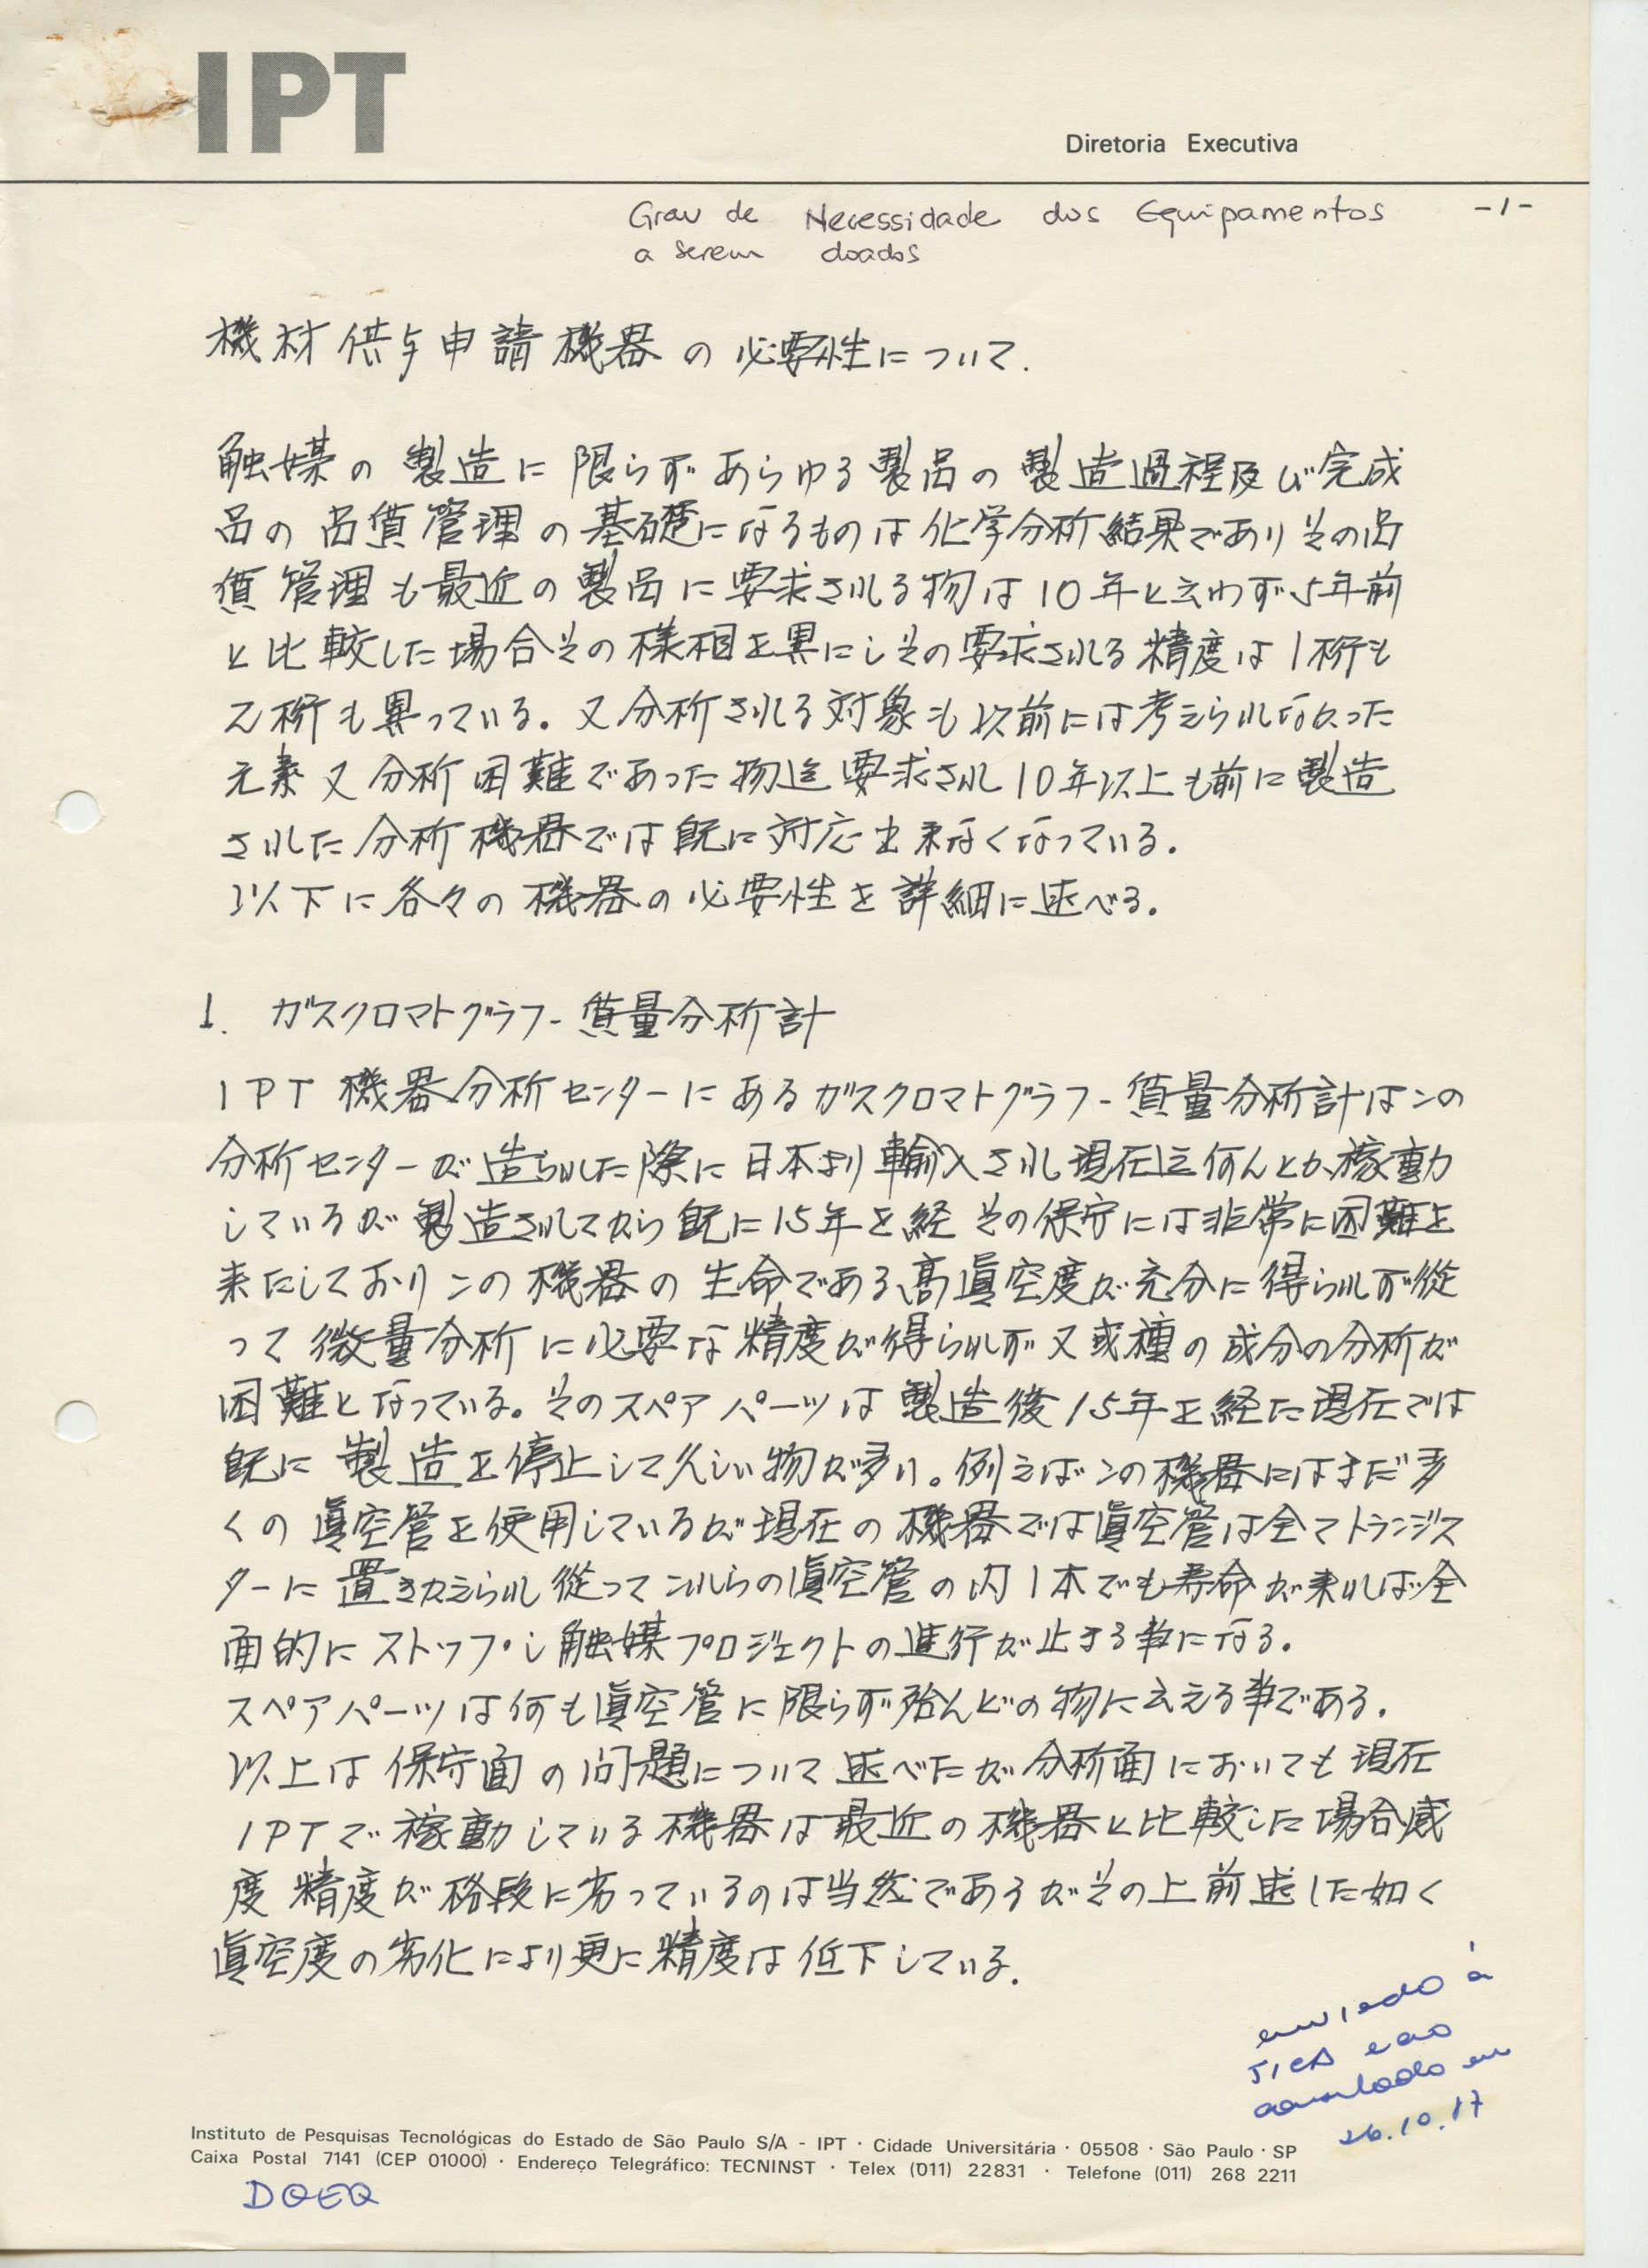 IPT
Diretoria Executiva
Grau de Necessidade dos Equipamentos -1-
a serem doados
機材供与申請機器の必要性について.
触媒の製造に限らずあらゆる製品の製造過程及び完成
品の品質管理の基礎になるものは化学分析結果でありその品
質管理も最近の製品に要求される物は10年と云わず5年前
と比較した場合その様相を異にしその要求される精度は1桁も
2桁も異っている。又分析される対象も以前には考えられなかった
元素又分析困難であった物迄要求され10年以上も前に製造
された分析機器では既に対応出来なくなっている.
以下に各々の機器の必要性を詳細に述べる.
1. ガスクロマトグラフ-質量分析計
IPT機器分析センターにあるガスクロマトグラフ-質量分析計はこの
分析センターが造られた際に日本より輸入され現在迄何んとか稼動
しているが製造されてから既に15年を経その保守には非常に困難を
来たしておりこの機器の生命である高眞空度が充分に得られず従
って微量分析に必要な精度が得られず又或種の成分の分析が
困難となっている。そのスペアパーツは製造後15年を経た現在では
既に製造を停止して久しい物が多い。例えばこの機器にはまだ多
くの眞空管を使用しているが現在の機器では眞空管は全てトランジス
ターに置きかえられ従ってこれらの眞空管の内1本でも寿命が来れば全
面的にストップし触媒プロジェクトの進行が止まる事になる.
スペアパーツは何も眞空管に限らず殆んどの物に云える事である.
以上は保守面の問題について述べたが分析面においても現在
IPTで稼動している機器は最近の機器と比較した場合感
度精度が格段に劣っているのは当然であるがその上前述した如く
眞空度の劣化により更に精度は低下している.
enviado à
JICA e ao
consulado em
26.10.17
Instituto de Pesquisas Tecnológicas do Estado de São Paulo S/A - IPT · Cidade Universitária · 05508 · São Paulo · SP
Caixa Postal 7141 (CEP 01000) · Endereço Telegráfico: TECNINST · Telex (011) 22831 · Telefone (011) 268 2211
DQEQ